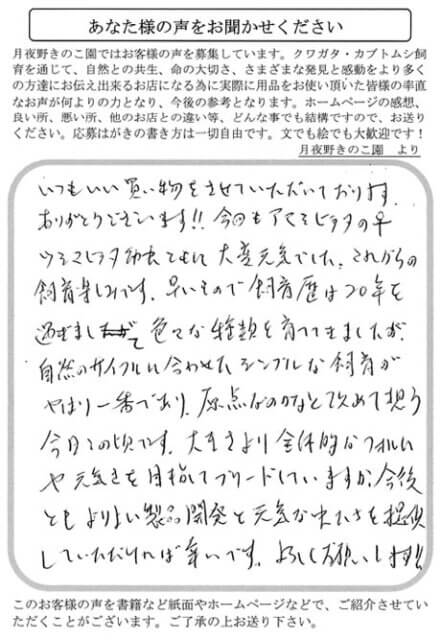 あなた様の声をお聞かせください
月夜野きのこ園ではお客様の声を募集しています。クワガタ・カブトムシ飼
育を通じて、自然との共生、命の大切さ、さまざまな発見と感動をより多く
の方達にお伝え出来るお店になる為に実際に用品をお使い頂いた皆様の率直
なお声が何よりの力となり、今後の参考となります。ホームページの感想、
良い所、悪い所、他のお店との違い等、どんな事でも結構ですので、お送り
ください。応募はがきの書き方は一切自由です。文でも絵でも大歓迎です！
月夜野きのこ園　より
いつもいい買い物をさせていただいております。
ありがとうございます!! 今回もアマミヒラタの♀
ヒラタ幼虫ともに大変元気でした。これからの
飼育楽しみです。早いもので飼育歴は20年を
過ぎまして色々な種類を育ててきましたが、
自然のサイクルに合わせたシンプルな飼育が
やはり一番であり、原点なのかなと改めて想う
今日この頃です。大きさより全体的なフォルム
や元気さを目指してブリードしていますが、今後
ともより良い製品開発と元気な虫たちを提供
していただければ幸いです。よろしくお願いします!!
このお客様の声を書籍など紙面やホームページなどで、ご紹介させてい
ただくことがございます。ご了承の上お送り下さい。